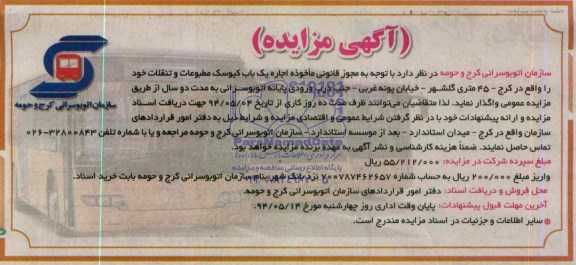 (آگهی مزایده)
سازمان اتوبوسرانی کرج و حومه
سازمان اتوبوسرانی کرج و حومه در نظر دارد با توجه به مجوز قانونی مأخوذه اجاره یک باب کیوسک مطبوعات و تنقلات خود
را واقع در کرج - ۴۵ متری گلشهر - خیابان پونه غربی - جنب درب ورودی پایانه اتوبوسرانی به مدت دو سال از طریق
مزایده عمومی واگذار نماید. لذا متقاضیان می‌توانند ظرف مدت ده روز کاری از تاریخ ۹۴/۰۵/۰۴ جهت دریافت اسناد
مزایده و ارائه پیشنهادات خود با در نظر گرفتن شرایط عمومی و اقتصادی مزایده و شرایط ذیل به دفتر امور قراردادهای
سازمان واقع در کرج - میدان استاندارد - بعد از موسسه استاندارد - سازمان اتوبوسرانی کرج و حومه مراجعه و یا با شماره تلفن ۳۲۸۰۰۸۴۳-۰۲۶
تماس حاصل نمایند. ضمناً هزینه کارشناسی و نشر آگهی به عهده برنده مزایده خواهد بود.
مبلغ سپرده شرکت در مزایده: ۵۵/۲۱۲/۰۰۰ ریال
واریز مبلغ ۲۰۰/۰۰۰ ریال به حساب شماره ۷۰۰۷۸۷۴۶۲۶۵۷ نزد بانک شهر بنام سازمان اتوبوسرانی کرج و حومه بابت خرید اسناد.
محل فروش و دریافت اسناد: دفتر امور قراردادهای سازمان اتوبوسرانی کرج و حومه.
آخرین مهلت قبول پیشنهادات: پایان وقت اداری روز چهارشنبه مورخ ۹۴/۰۵/۱۴.
* سایر اطلاعات و جزئیات در اسناد مزایده مندرج است.
ParsNamadData
پایگاه اطلاع رسانی مناقصه و مزایده